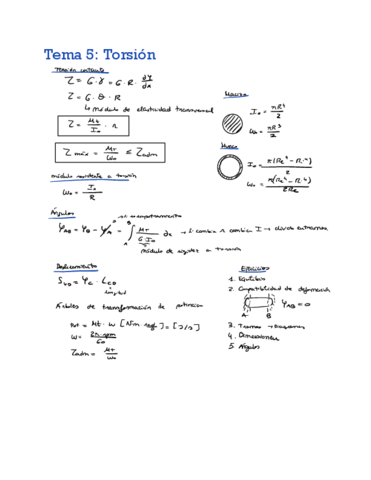 Tema 5: Torsión
Tensión cortante
τ = G · γ = G · R · dφ/dx
τ = G · θ · R
↳ módulo de elasticidad transversal
τ = Mt/Io · r
τ máx = Mt/Wo ≤ τ adm
módulo resistente a torsión
Wo = Io/R
Maciza
Io = πR⁴/2
Wo = πR³/2
Hueca
Io = π(Re⁴ - Ri⁴)/2
Wo = π(Re⁴ - Ri⁴)/2Re
Ángulos
φAB = φB - φA = ∫ MT/G Io dx →
módulo de rigidez a torsión
Desplazamiento
φC · LCD
longitud
Árboles de transformación de potencia
Pot = Mt · ω [N·m · rad/s] = [J/s]
ω = 2π·rpm/60
τ adm = MT/Wo
Ejercicios
1. Equilibrio
2. Compatibilidad de deformación
A B φAB = 0
3. Tramos → Diagramas
4. Dimensionar
5. Ángulos